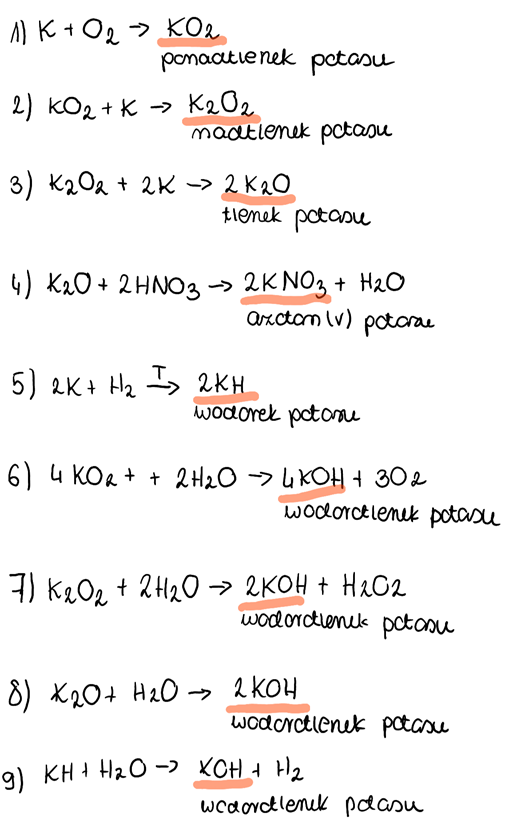 1) K + O2 → KO2
ponadtlenek potasu
2) KO2 + K → K2O2
nadtlenek potasu
3) K2O2 + 2K → 2K2O
tlenek potasu
4) K2O + 2HNO3 → 2KNO3 + H2O
azotan (V) potasu
5) 2K + H2 T→ 2KH
wodorek potasu
6) 4KO2 + + 2H2O → 4KOH + 3O2
wodorotlenek potasu
7) K2O2 + 2H2O → 2KOH + H2O2
wodorotlenek potasu
8) K2O + H2O → 2KOH
wodorotlenek potasu
9) KH + H2O → KOH + H2
wodorotlenek potasu